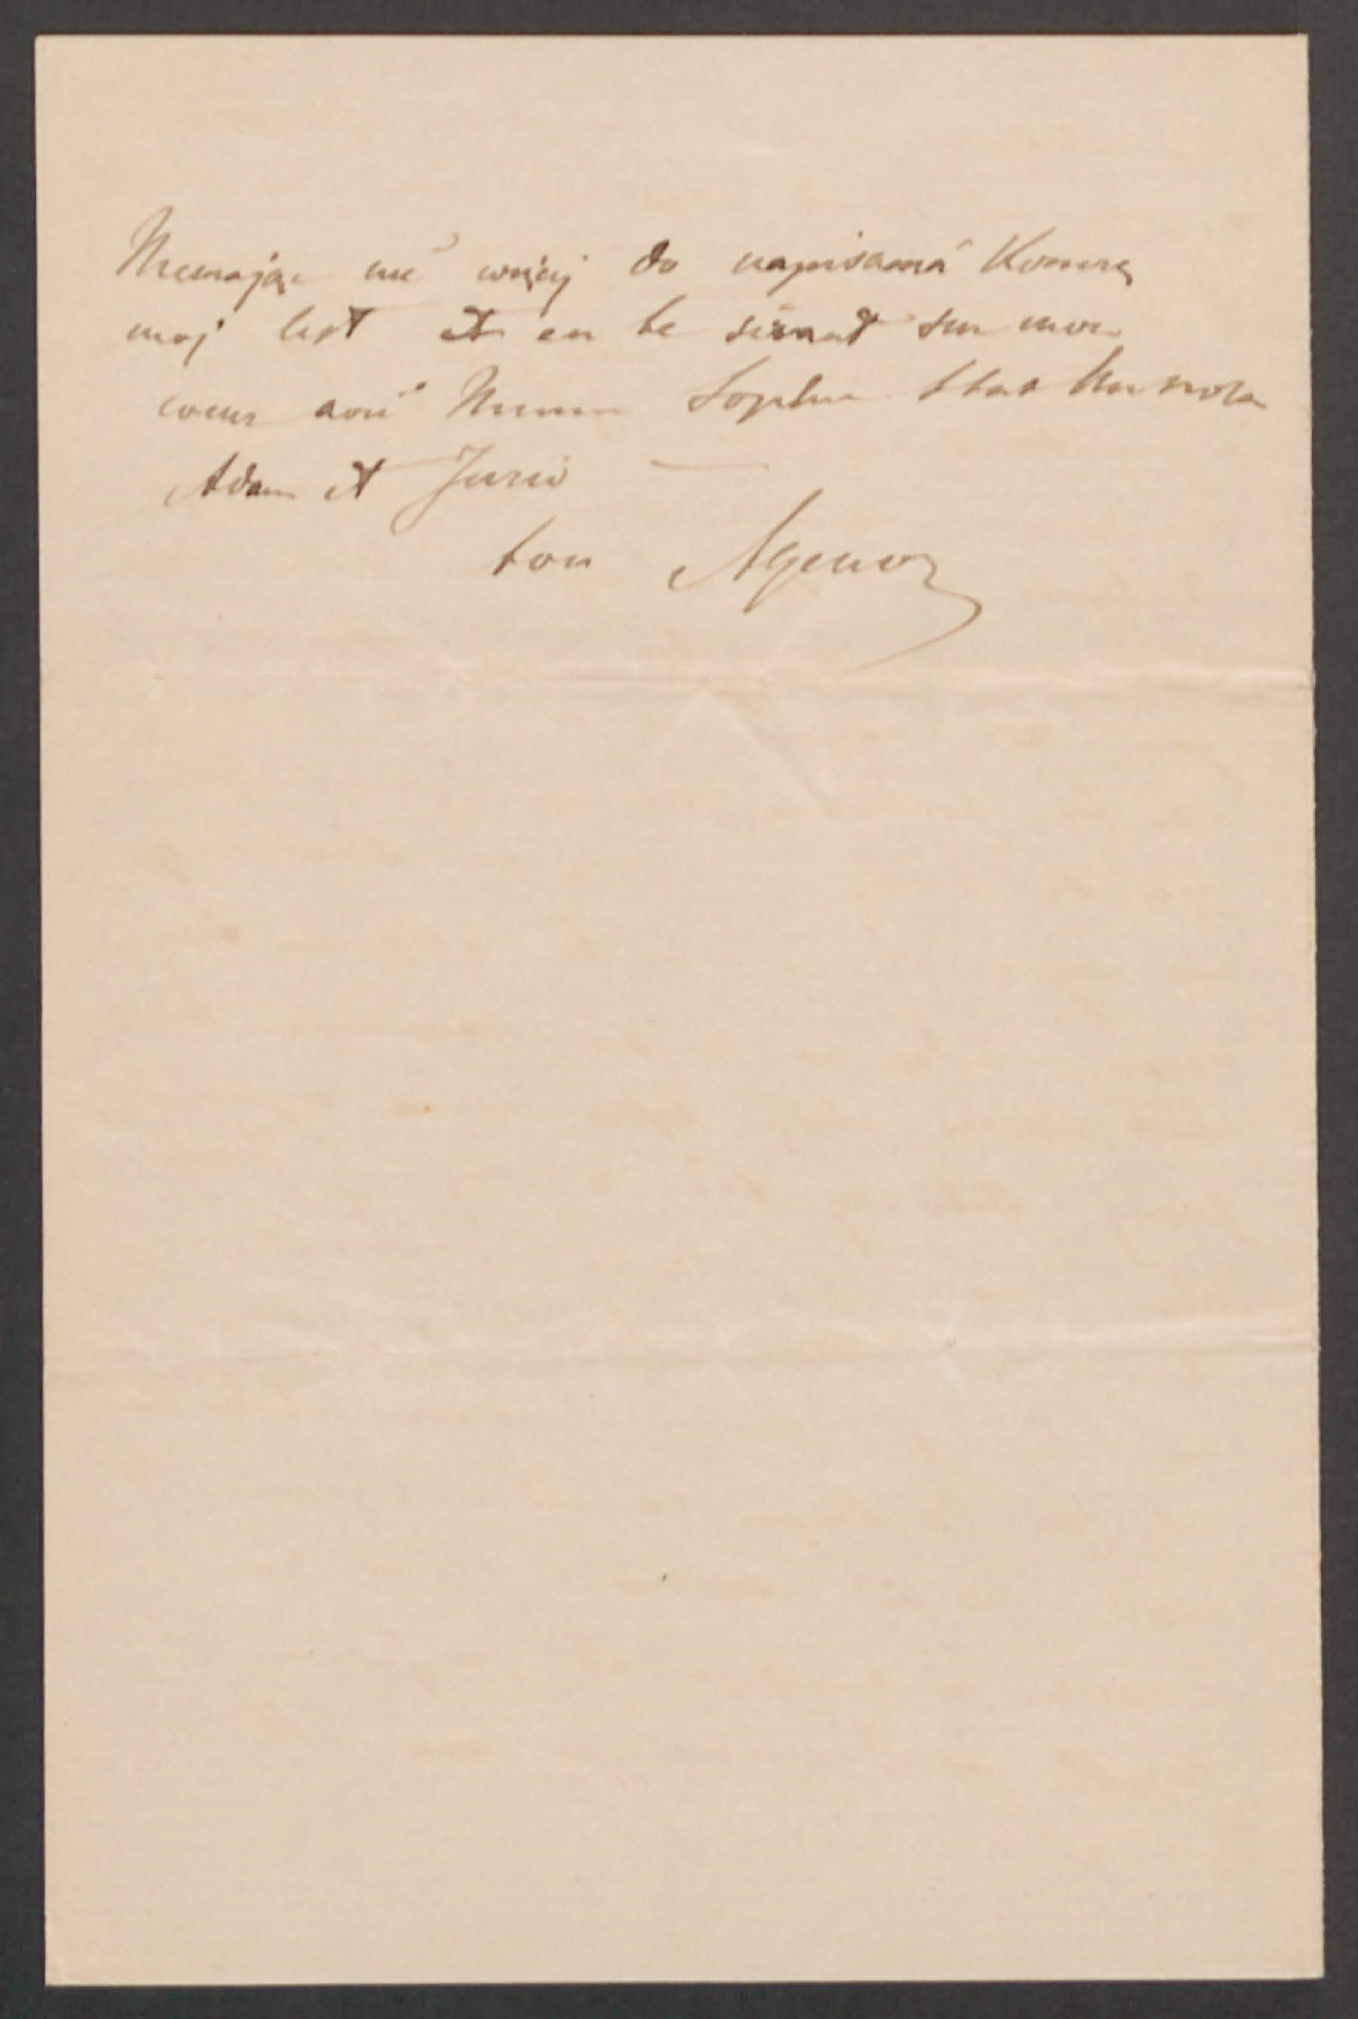 Niemając nic więcej do napisania Konczę
moj list et en te serrant sur mon
coeur avec Mimi Sophie
Adam et Jurio —
ton Agenor